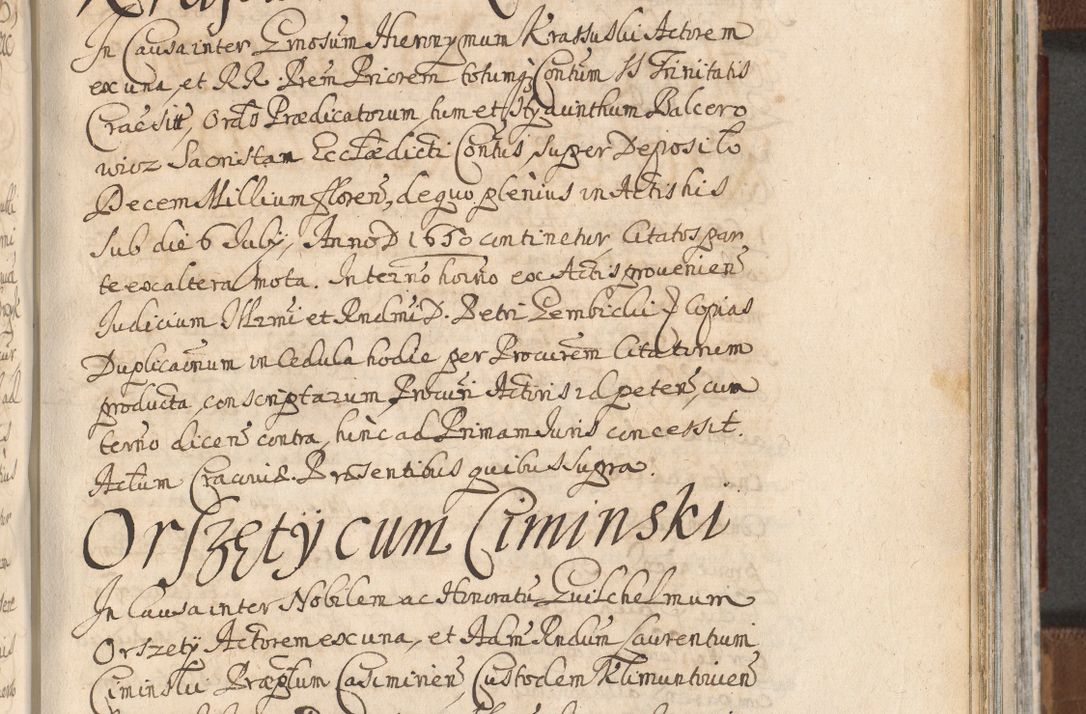 In Causa inter Gnosum Hieronymum Krassuski Actorem
ex una, et RR. Prem Priorem totumq Contum SS Trinitatis
Crac̃ sitt, Ord̃ Prædicatorum, tum et Hyacinthum Balcero
wicz Sacristam Eccl̃æ dicti Contus, super Deposito
Decem Millium floren̄, de quo plenius in Actis his
sub die 6 July, Anno D 1650 continetur Citatos par
te ex altera mota. In termn̄o hoīno ex Actis provenien̄
Iudicium Illrmi et Rndmi D. Petri Gembicki copias
Duplicaōnum in Cedula hodie per Procurem Citatorum
producta, conscriptarum Procuri Actoris id peten̄, cum
termn̄o dicen̄ contra, hinc ad Primam Iuris concessit.
Actum Cracoviæ. Præsentibus quibus supra.
Orszęty cum Ciminski
In Causa inter Nobilem ac Honoratū Guilchelmum
Orszety Actorem ex una, et Adm̄ Rndum Laurentium
Ciminski Præp̄tum Casimirien̄ Custodem Klimuntovien̄